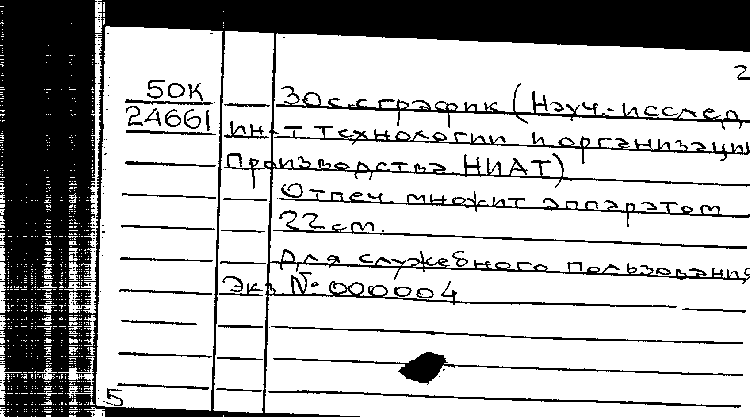 2
50К
24661
30с. с график (Науч.-исслед
ин-т технологии и организации
производства НИАТ)
Отпеч. множит аппаратом
22 см.
Для служебного пользования
Экз № 000004
5